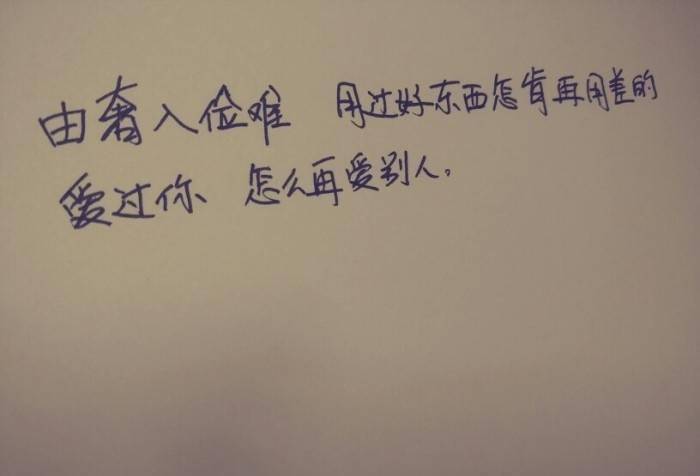 由奢入俭难 用过好东西怎肯再用差的
爱过你 怎么再爱别人。